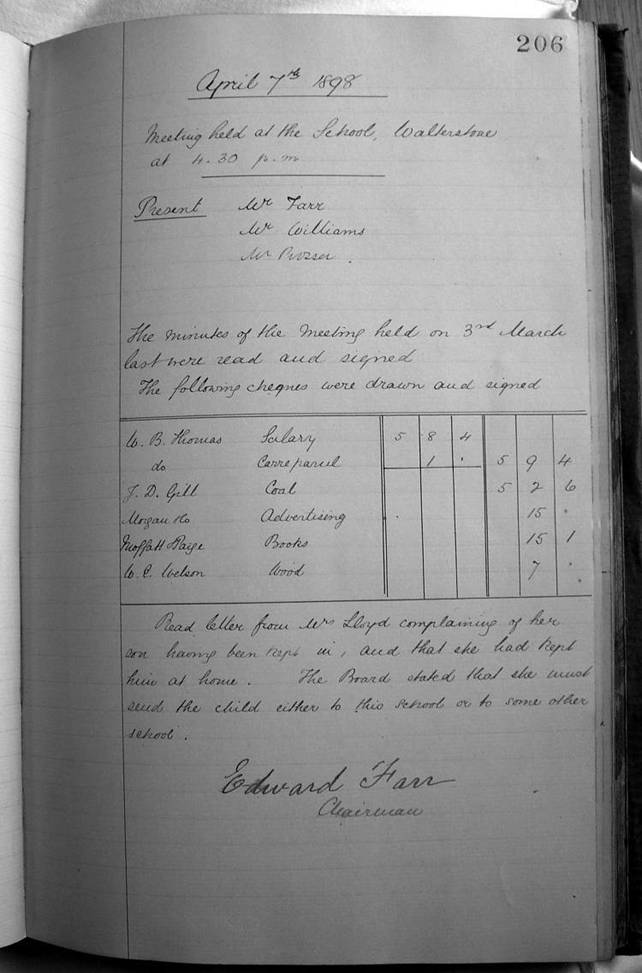 206
April 7th 1898
Meeting held at the School, Walterstone
at 4.30 p.m
Present Mr Farr
Mr Williams
Mr Prosser.
The minutes of the meeting held on 3rd March
last were read and signed
The following cheques were drawn and signed
W. B. Thomas Salary 5 8 4
do Carr. parcel 1 . 5 9 4
J. D. Gill Coal 5 2 6
Morgan & Co Advertising 15 .
Moffatt Paige Books 15 1
W. C. Welson Wood 7 .
Read letter from Mrs Lloyd complaining of her
son having been kept in, and that she had kept
him at home. The Board stated that she must
send the child either to this school or to some other
school.
Edward Farr
Chairman